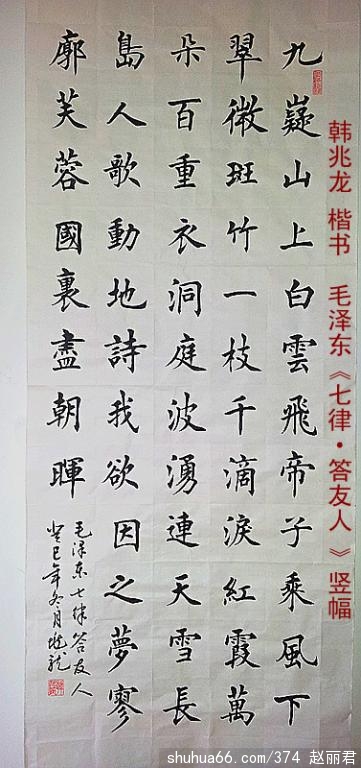 韩兆龙 楷书 毛泽东《七律·答友人 》竖幅
九嶷山上白雲飛帝子乘風下
翠微斑竹一枝千滴淚紅霞萬
朵百重衣洞庭波湧連天雪長
島人歌動地詩我欲因之夢寥
廓芙蓉國裏盡朝暉
毛泽东七律答友人
癸巳年冬月兆龙
shuhua66.com/374 赵丽君